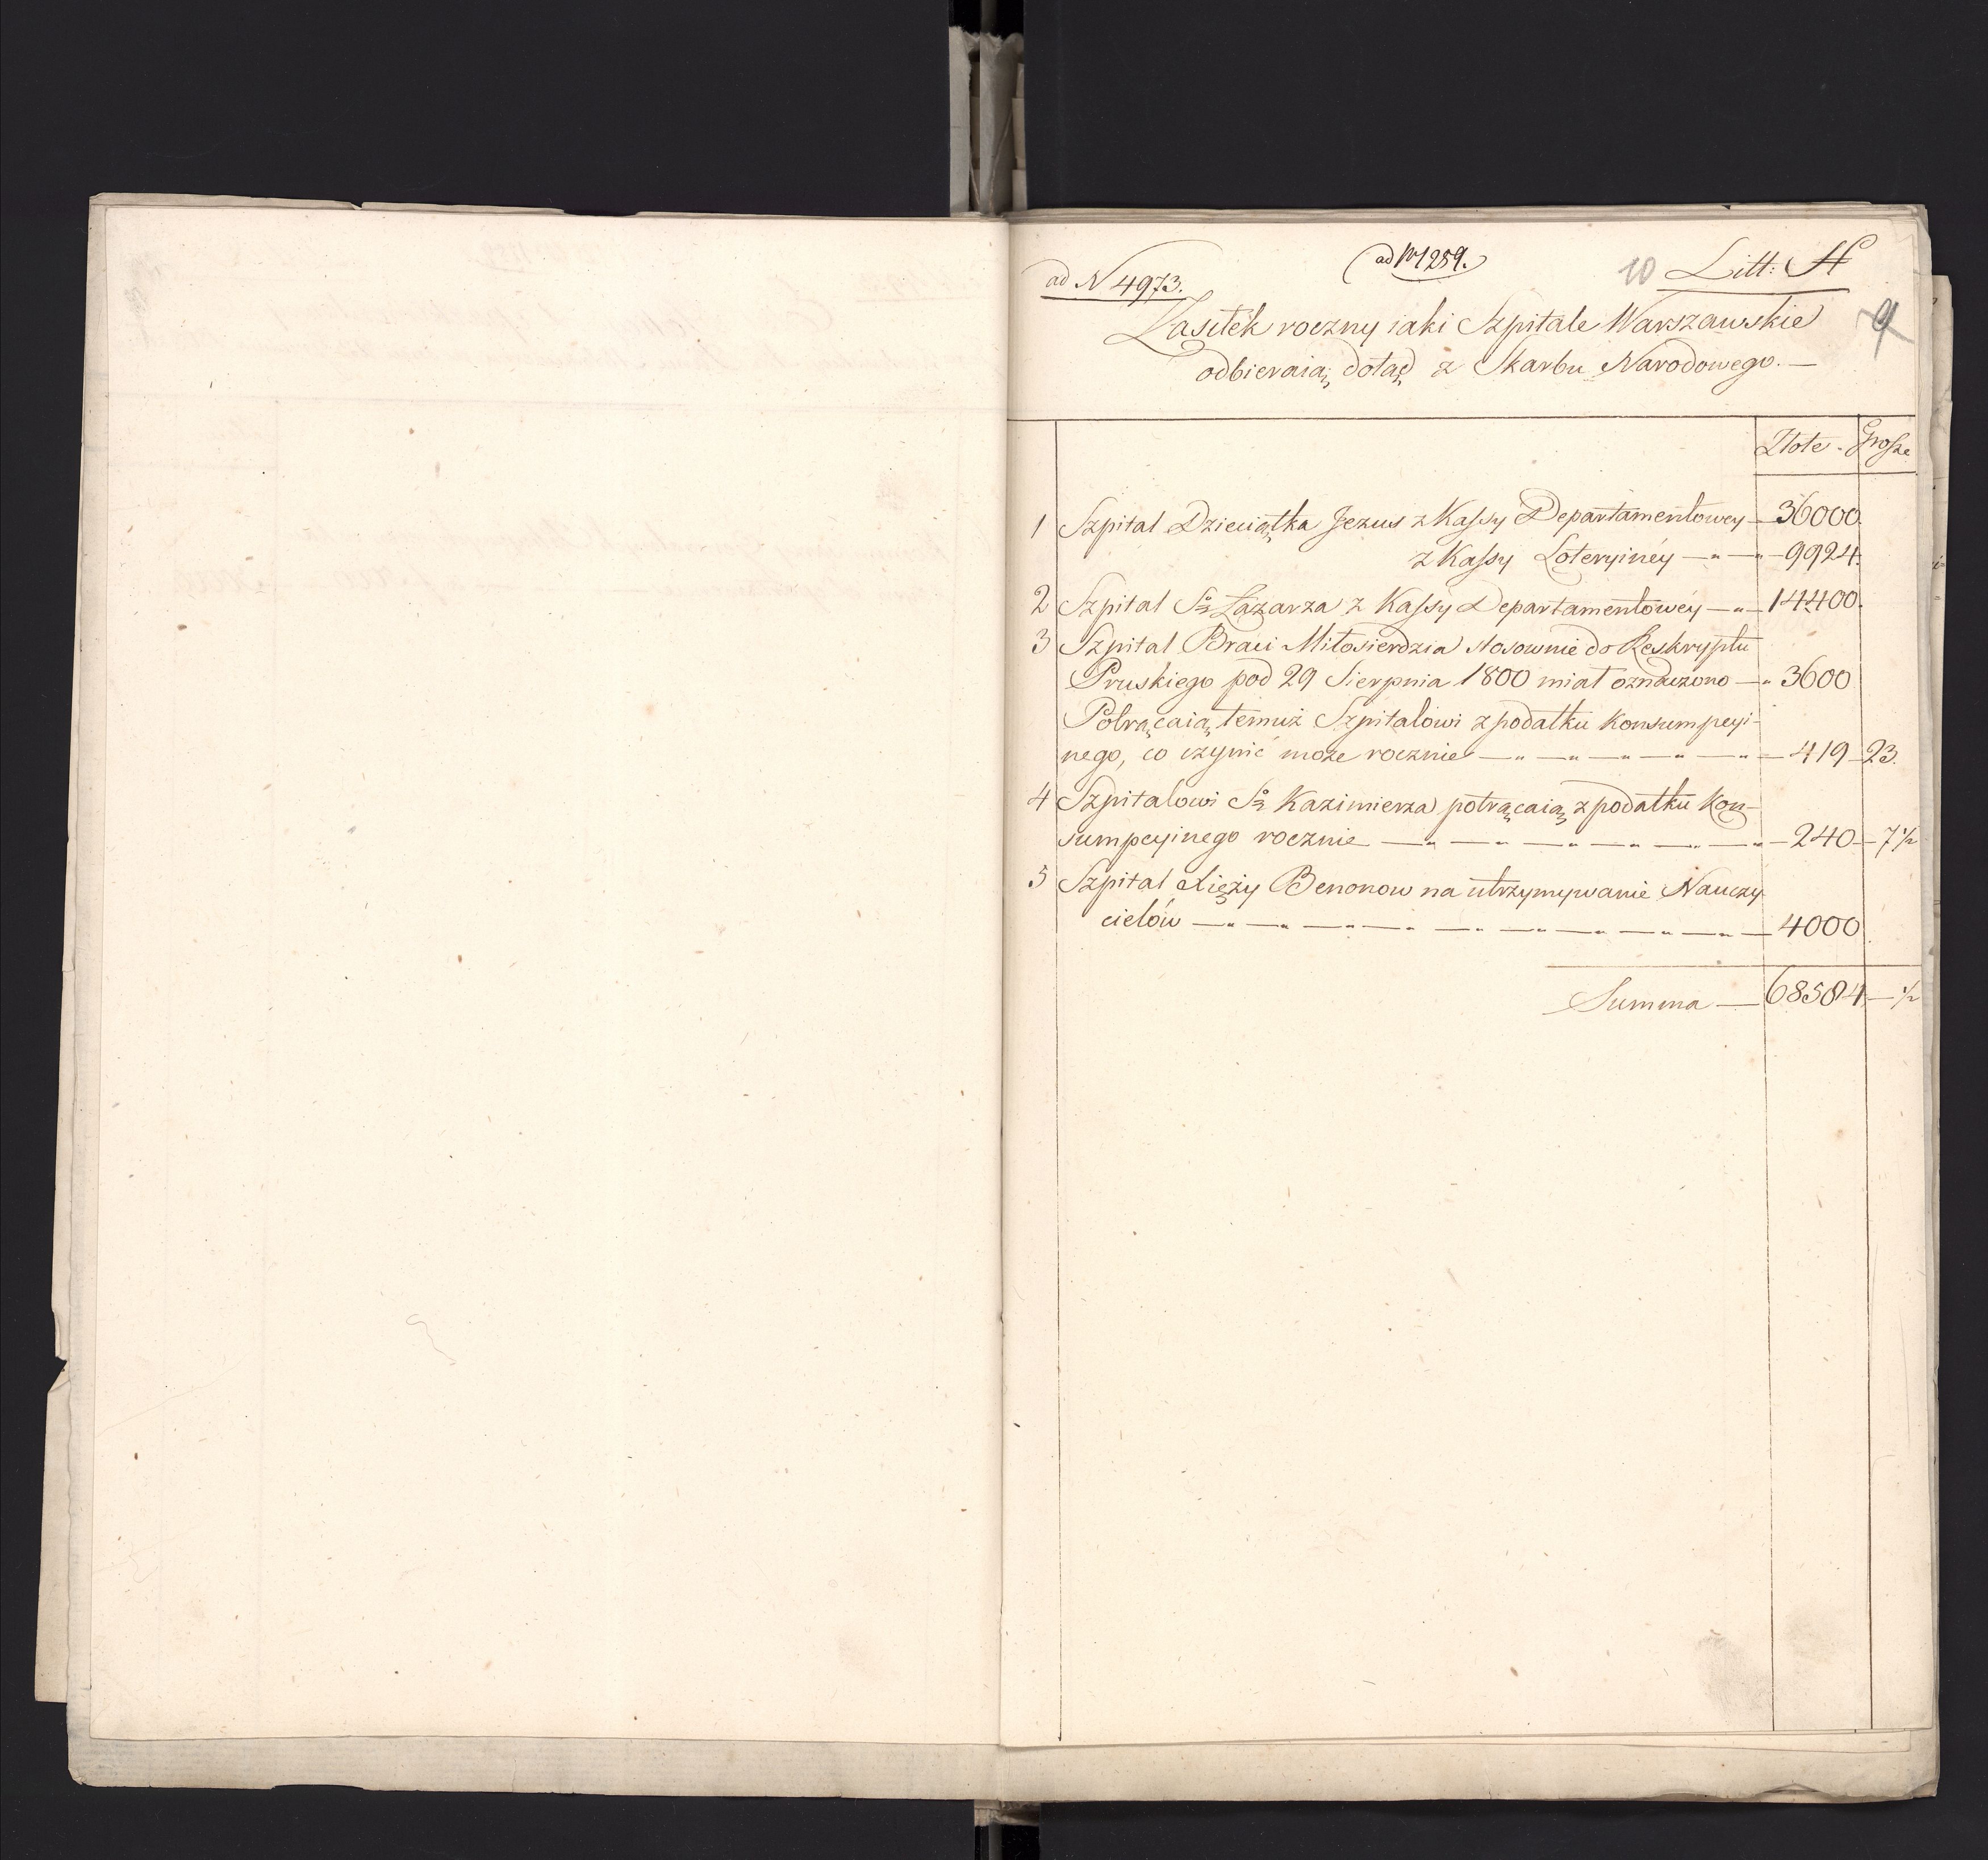 ad N 4973.
ad Nr 1289.
10 Litt: H
9
Zasiłek roczny iaki Szpitale Warszawskie
odbieraią dotąd z Skarbu Narodowego. —
Złote. Grosze
1 Szpital Dzieciątka Jezus z Kassy Departamentowey — 36000.
z Kassy Loteryinéy — „ — „ — 9924.
2 Szpital Sgo Łazarza z Kassy Departamentowéy — „ — 14400.
3 Szpital Braci Miłosierdzia stosownie do Reskryptu
Pruskiego pod 29 Sierpnia 1800 miał oznaczono — „ 3600
Potrącaią temuż Szpitalowi z podatku Konsumpcyi-
nego, co czynić może rocznie — „ — „ — „ — „ — „ — 419 — 23.
4 Szpitalowi Sgo Kazimierza potrącaią z podatku Kon-
sumpcyinego rocznie — „ — „ — „ — „ — „ — „ — 240 — 7 1/2
5 Szpital Xięży Benonow na utrzymywanie Nauczy-
cielów — „ — „ — „ — „ — „ — „ — „ — „ — „ — 4000
Summa — 68584 — 1/2